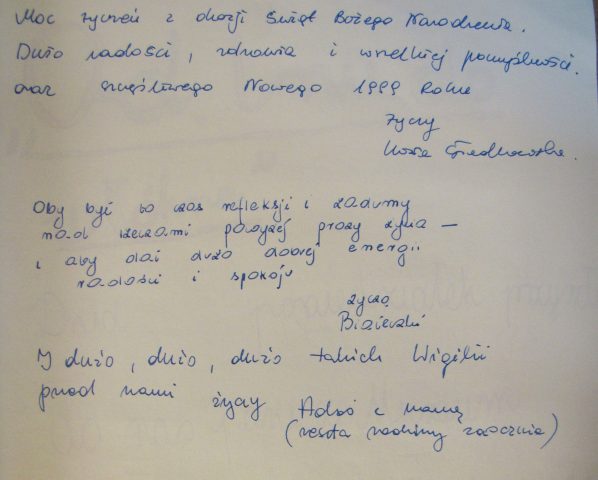 Moc życzeń z okazji Świąt Bożego Narodzenia.
Dużo radości, zdrowia i wszelkiej pomyślności.
oraz szczęśliwego Nowego 1999 Roku
życzy
Oby był to czas refleksji i zadumy
nad rzeczami powyżej prozy życia —
i aby dał dużo dobrej energii
radości i spokoju
życzą
I dużo, dużo, dużo takich Wigilii
przed nami życzy
z mamą
(reszta rodziny zaocznie)